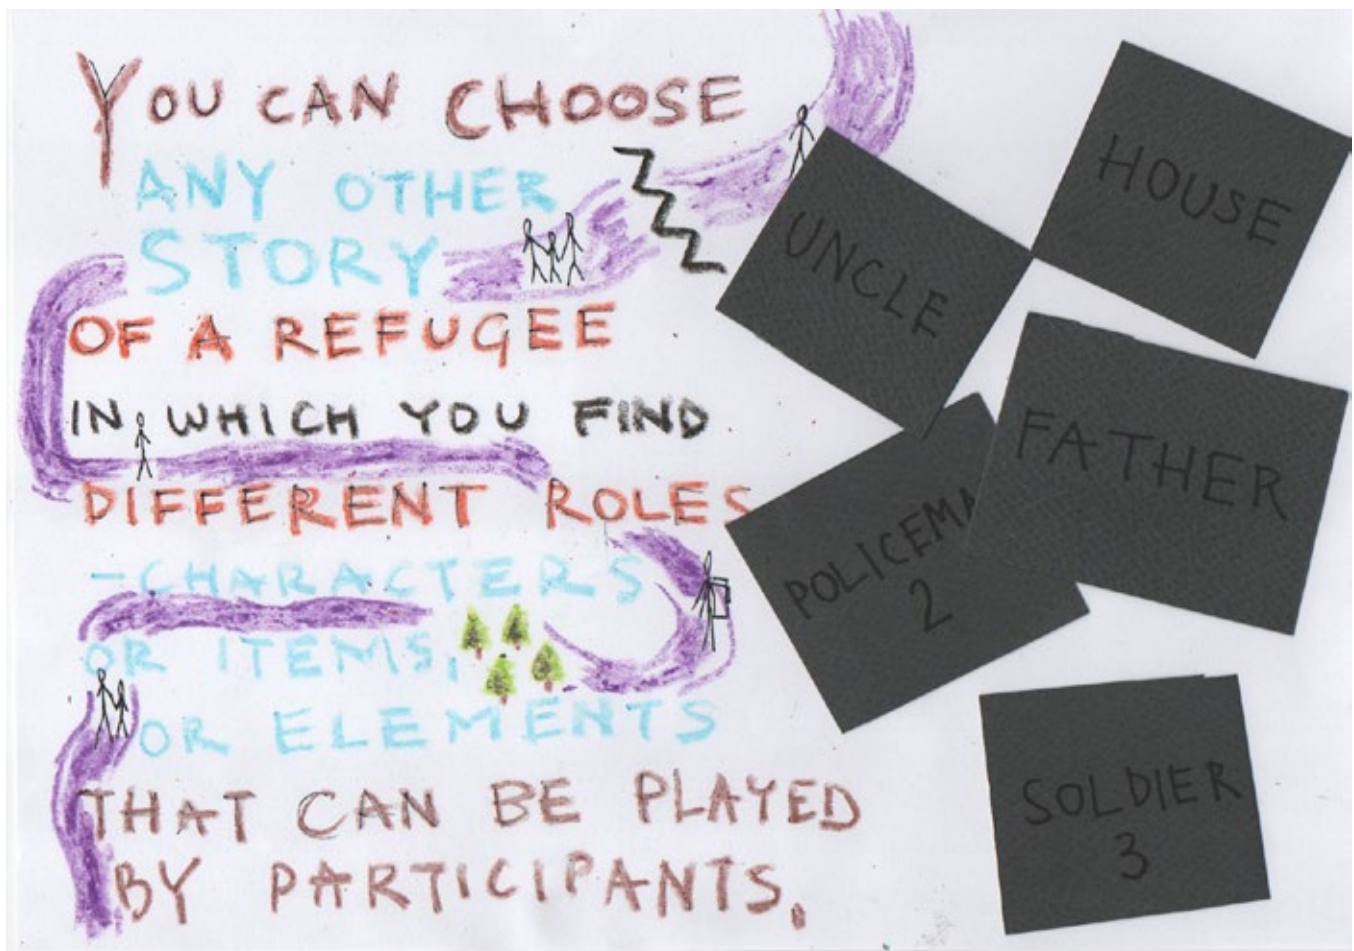 YOU CAN CHOOSE
ANY OTHER
STORY
OF A REFUGEE
IN WHICH YOU FIND
DIFFERENT ROLES
-CHARACTERS
OR ITEMS,
OR ELEMENTS
THAT CAN BE PLAYED
BY PARTICIPANTS.
HOUSE
UNCLE
FATHER
POLICEMA
2
SOLDIER
3